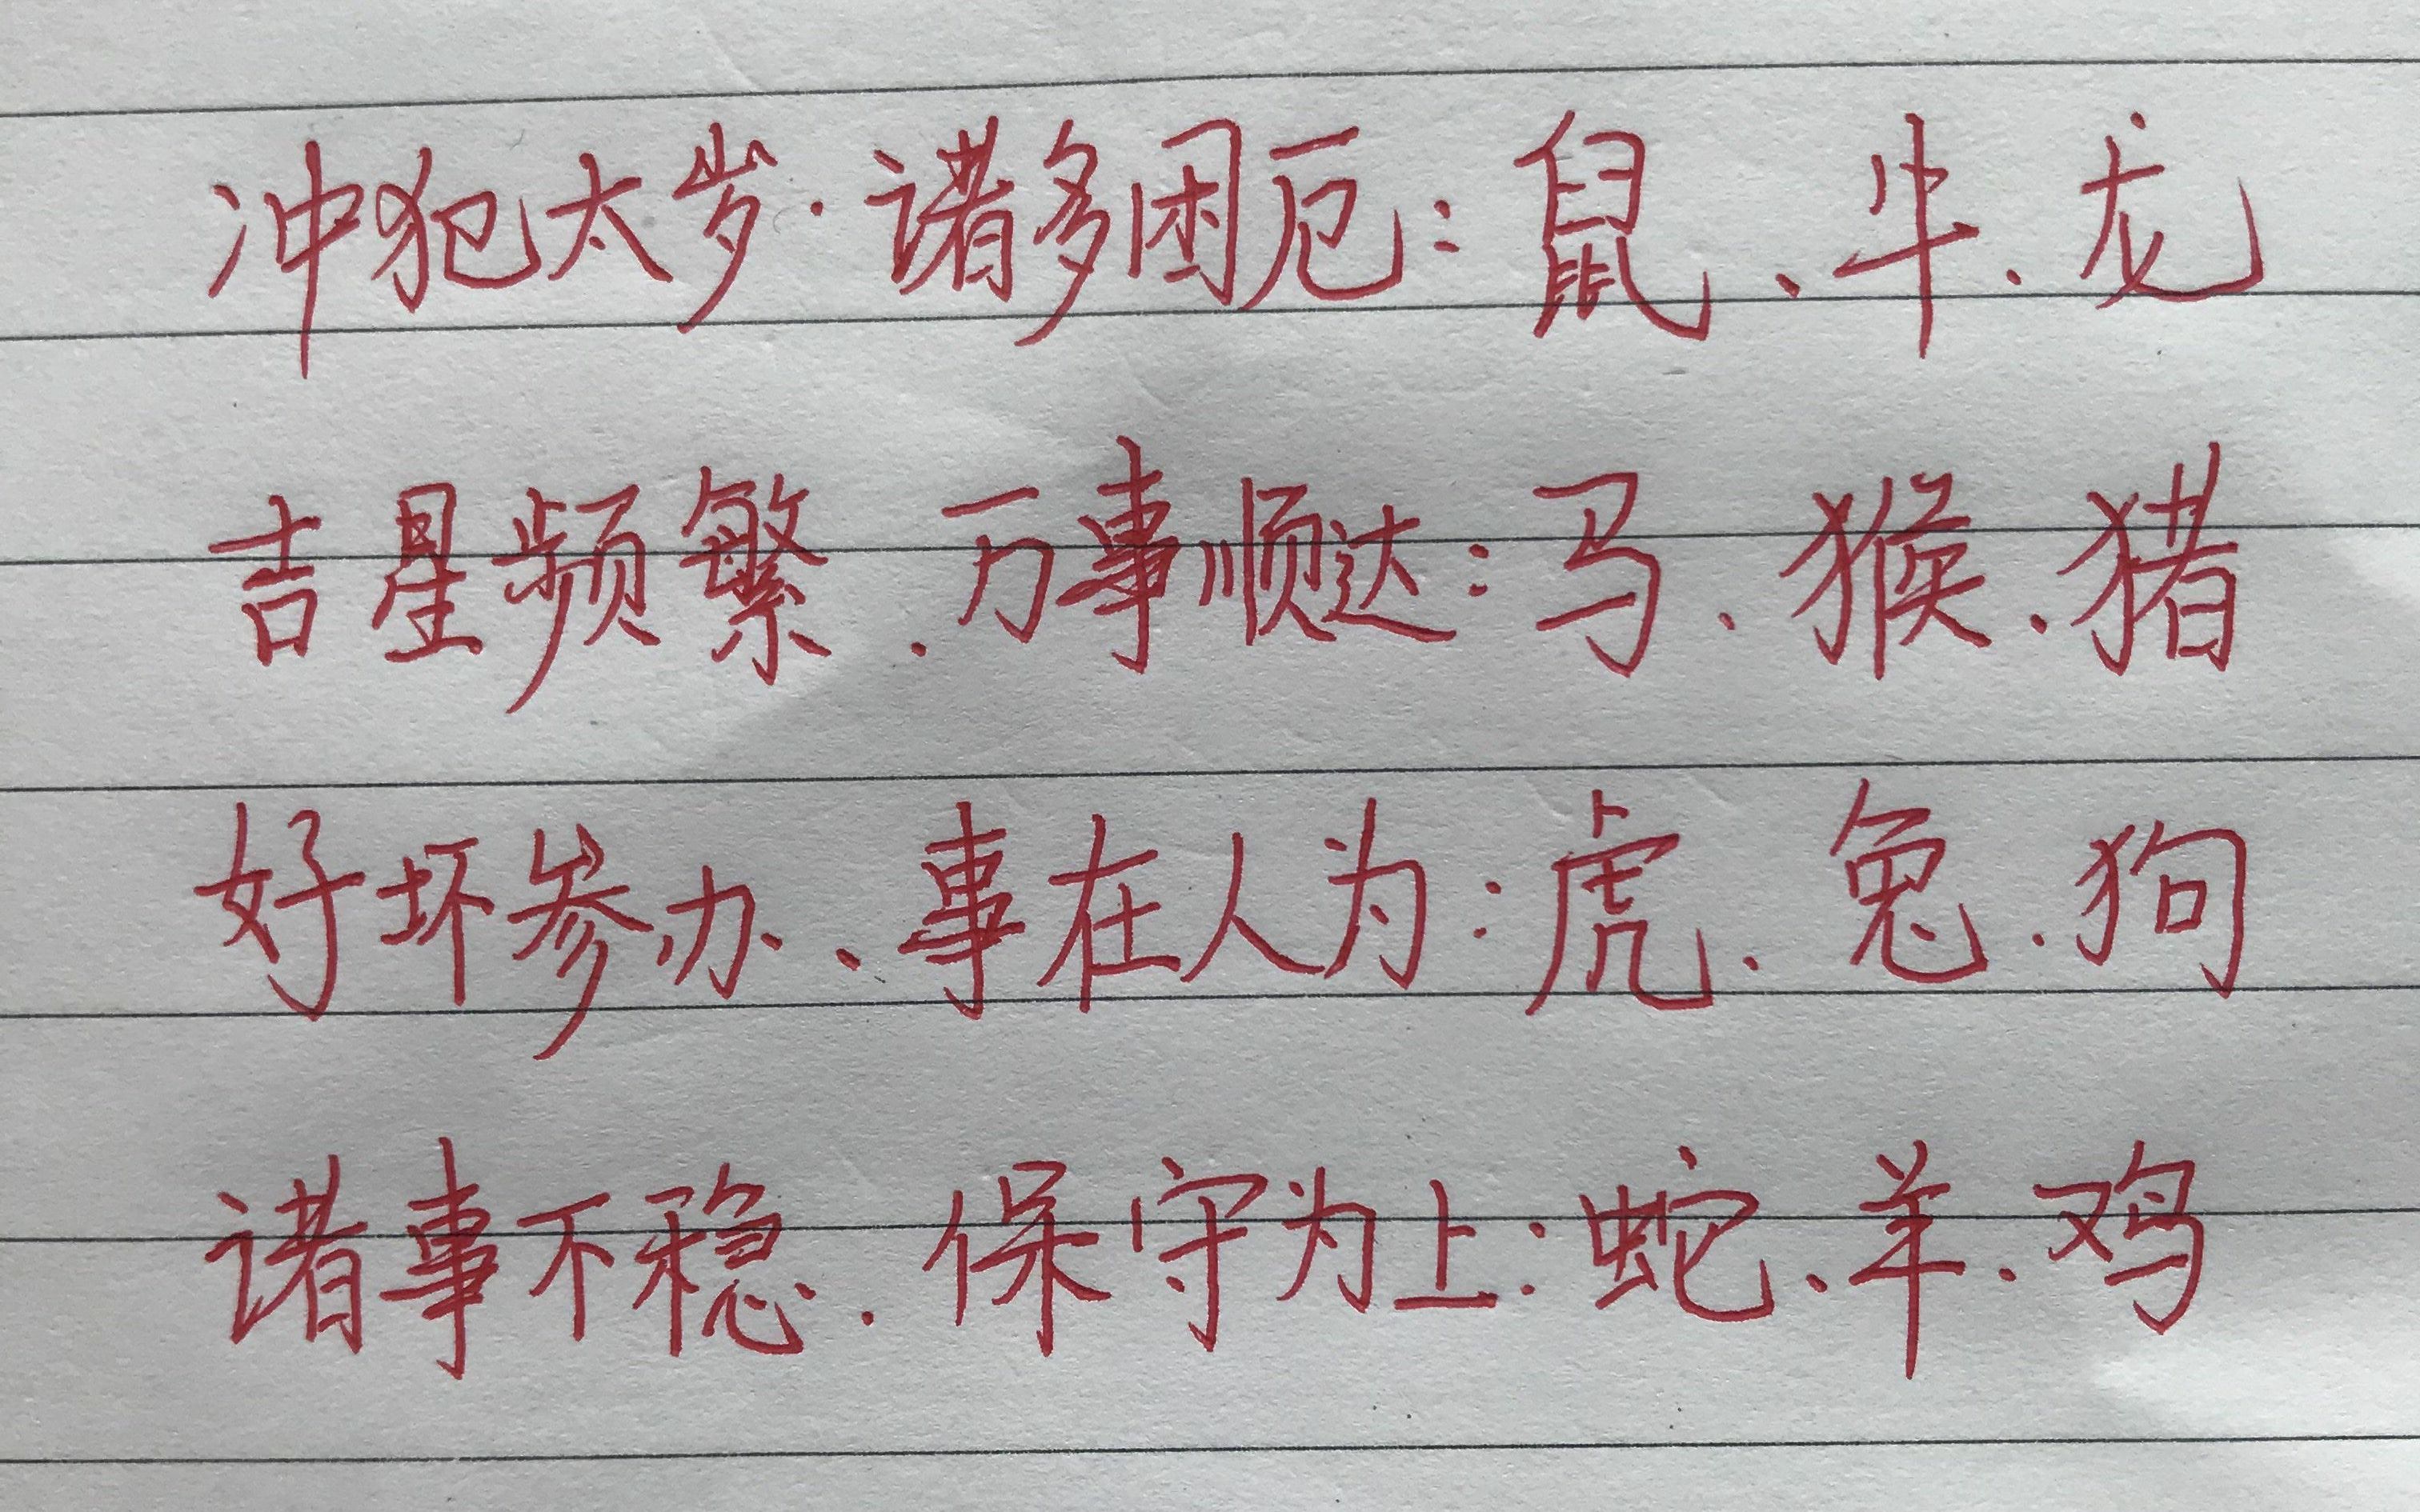 冲犯太岁.诸多困厄:鼠、牛、龙
吉星频繁.万事顺达:马、猴、猪
好坏参办、事在人为:虎、兔、狗
诸事不稳.保守为上:蛇、羊、鸡